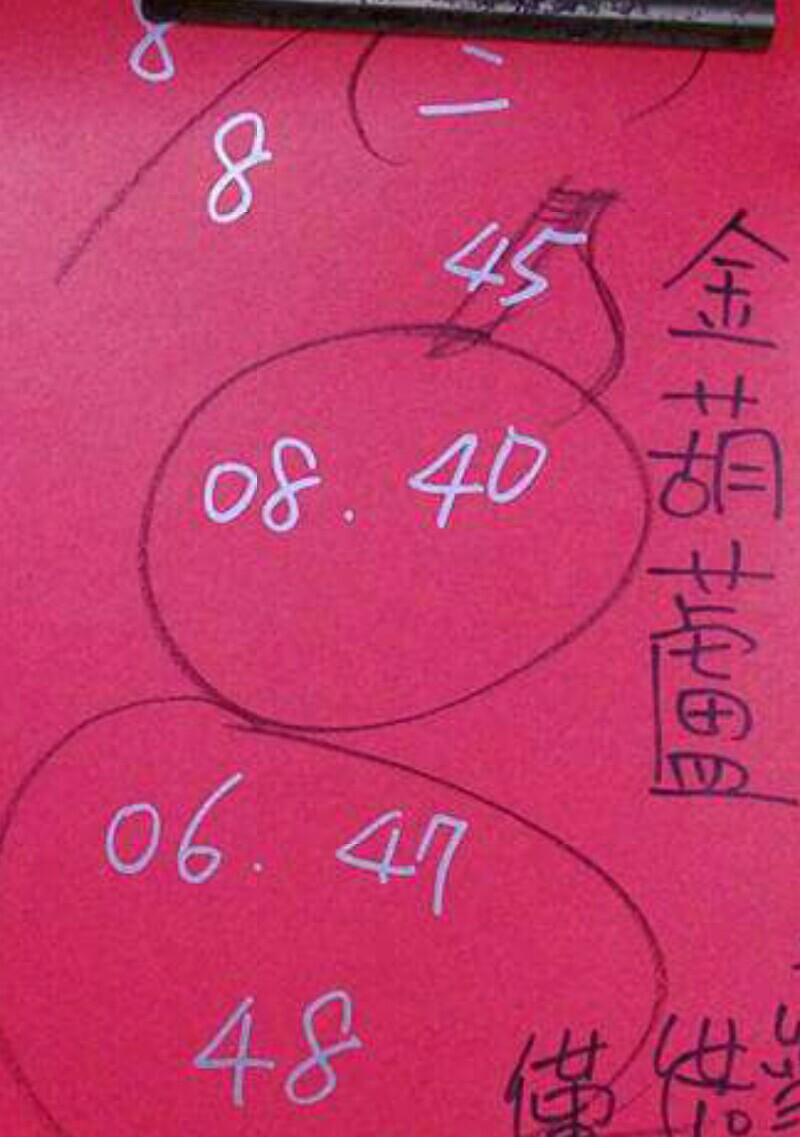 8
二
8
45
08. 40
06. 47
48
金葫蘆
僅供